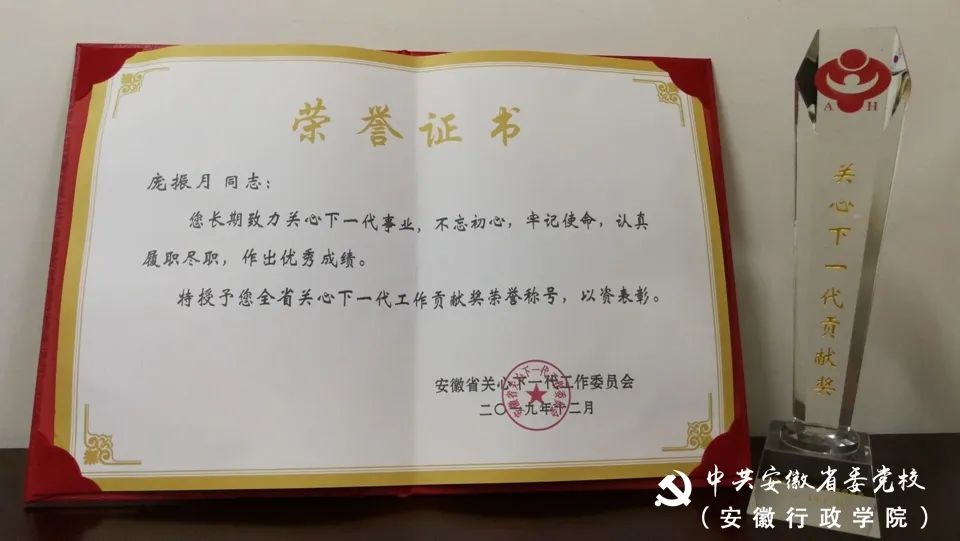 荣誉证书
庞振月 同志：
您长期致力关心下一代事业，不忘初心，牢记使命，认真
履职尽职，作出优秀成绩。
特授予您全省关心下一代工作贡献奖荣誉称号，以资表彰。
安徽省关心下一代工作委员会
二〇一九年十二月
A H
关心下一代贡献奖
中共安徽省委党校
（安徽行政学院）